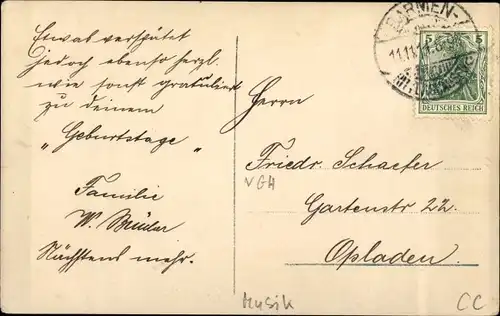 Etwas verspätet
jedoch ebenso herzl.
wie sonst gratuliert
zu deinem
„Geburtstage“
Familie
W.
Nächstens mehr.
BARMEN-
11.11.
5 5
DEUTSCHES REICH
Herrn
Friedr. Schaefer
VGH
Gartenstr. 22.
Opladen.
Musik
CC